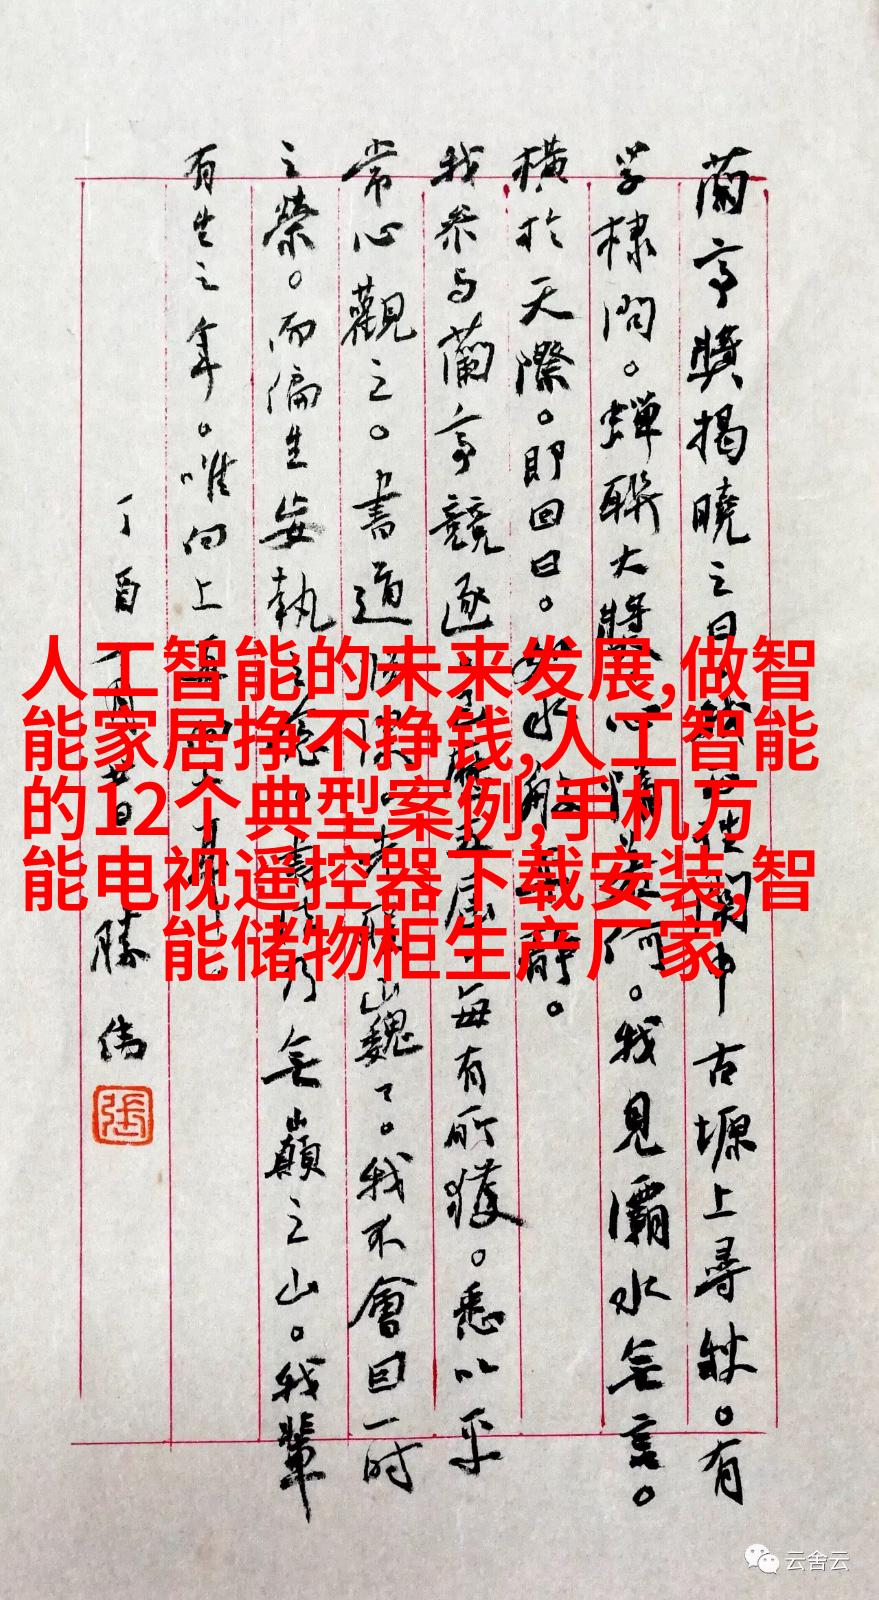 蘭亭獎揭曉之日關中古塬上尋秋。有
学棣問。蟬聯大獎心情若何。我見灞水無言。
橫於天際。即回曰。如水般靜。
我参与蘭亭競逐五屆。每有所獲。悉以平
常心觀之。書道山巍了。我不會因一时
之榮。而偏生妄執念。書法乃無巔之山。我輩
有生之年。唯向上
丁酉
勝偉
張
人工智能的未来发展,做智
能家居挣不挣钱,人工智能
的12个典型案例,手机万
能电视遥控器下载安装,智
能储物柜生产厂家
云舍云